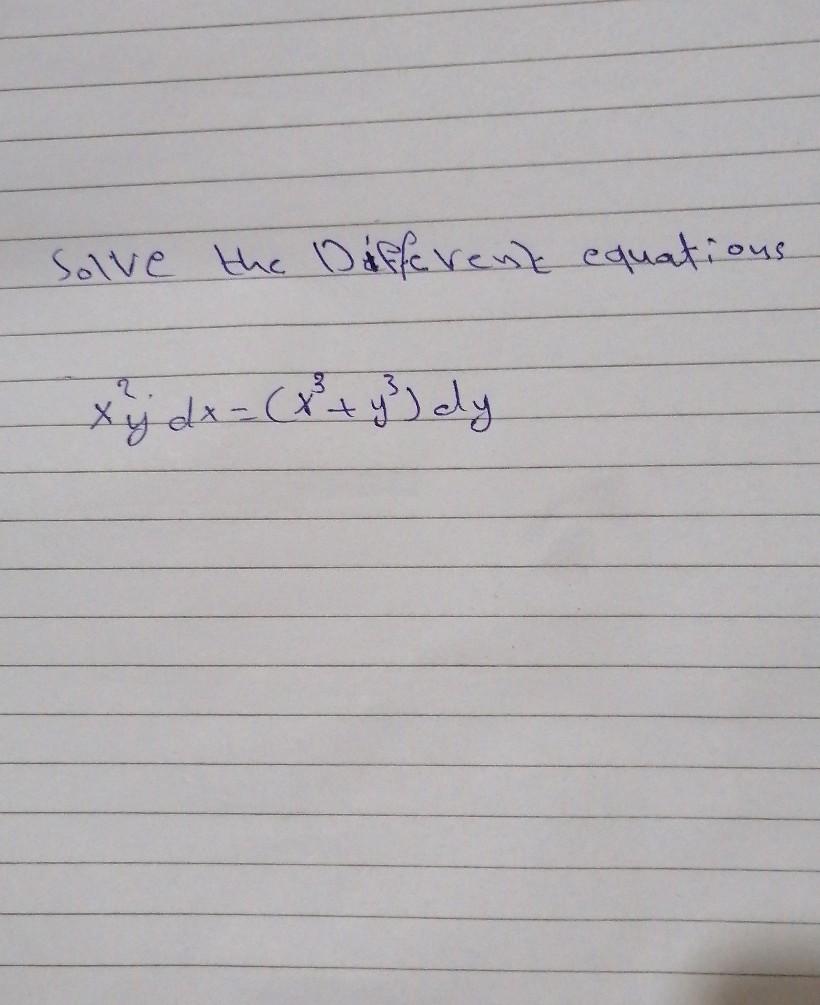 Solve the Different equations
x²y dx = (x³ + y³) dy